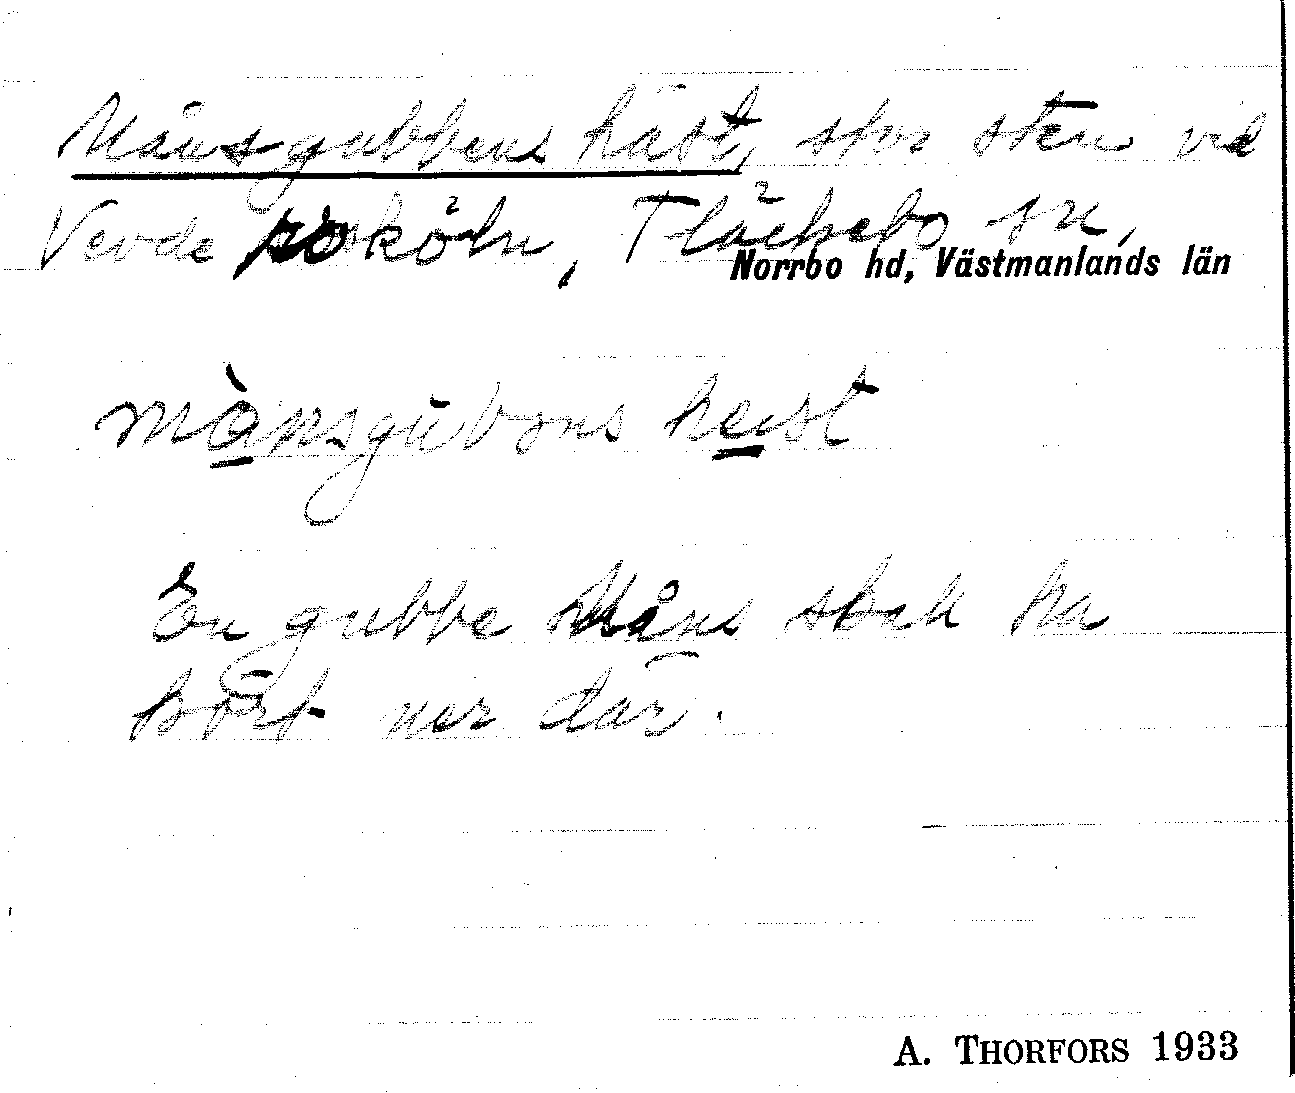 Månsgubbens häst, stor sten vid
Verde köln, Fläckebo sn,
Norrbo hd, Västmanlands län
månsgubəns hest
En gubbe Måns skall ha
kört ner där.
A. THORFORS 1933